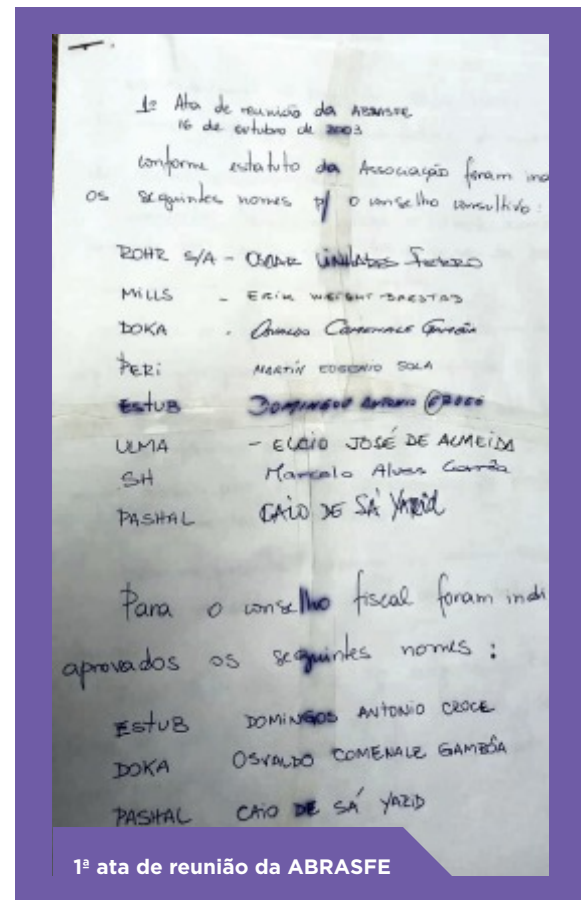 1ª Ata de reunião da ABRASFE
16 de outubro de 2003
conforme estatuto da Associação foram ind
os seguintes nomes p/ o conselho consultivo:
ROHR S/A - OSCAR
MILLS - ERIK WRIGHT BARSTAD
DOKA - Osvaldo Comenale Gambôa
PERI MARTÍN EUGENIO SOLA
ESTUB DOMINGOS ANTONIO CROCE
ULMA - ELCIO JOSÉ DE ALMEIDA
SH Marcelo Alves Corrêa
PASHAL CAIO DE SÁ YAZID
Para o conselho fiscal foram indi
aprovados os seguintes nomes:
ESTUB DOMINGOS ANTONIO CROCE
DOKA OSVALDO COMENALE GAMBÔA
PASHAL CAIO DE SÁ YAZID
1ª ata de reunião da ABRASFE